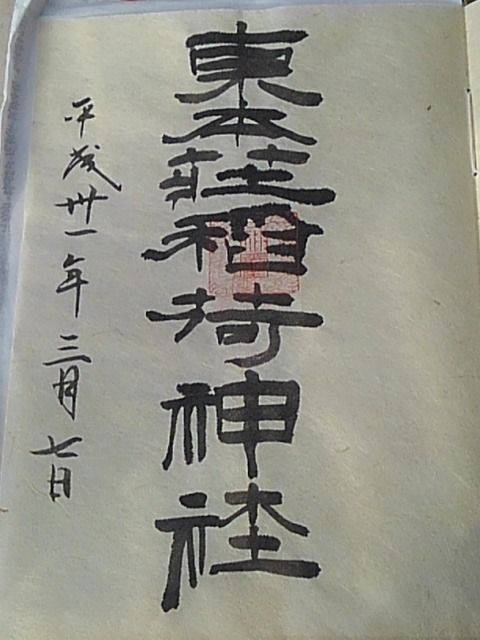 東本莊稲荷神社
平成卅一年三月七日